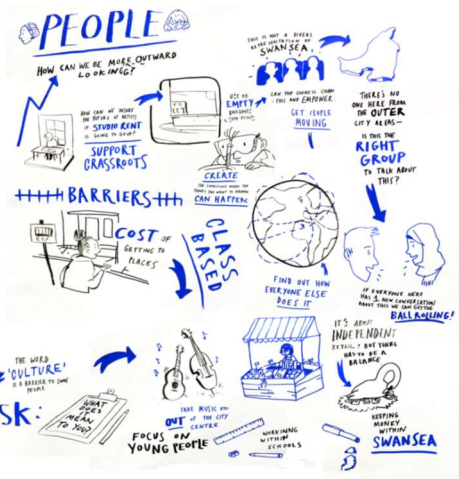 PEOPLE
HOW CAN WE BE MORE OUTWARD
LOOKING?
HOW CAN WE
THE FUTURE OF ARTISTS
IF STUDIO RENT
IS GOING TO GO UP?
SUPPORT
GRASSROOTS
EMPTY
CREATE
THE CONDITIONS WHERE THE
THINGS YOU WANT TO HAPPEN
CAN HAPPEN
THIS IS NOT A DIVERSE
REPRESENTATION OF
SWANSEA
CAN THE COUNCIL
THIS AND EMPOWER
GET PEOPLE
MOVING
THERE'S NO
ONE HERE FROM
THE OUTER
CITY AREAS -
IS THIS THE
RIGHT
GROUP
TO TALK ABOUT
THIS?
BARRIERS
COST OF
GETTING TO
PLACES
CLASS
BASED
FIND OUT HOW
EVERYONE ELSE
DOES IT
IF EVERYONE HERE
HAS 1 NEW CONVERSATION
ABOUT THIS WE CAN GET THE
BALL ROLLING!
THE WORD
'CULTURE'
IS A BARRIER TO SOME
PEOPLE
SK:
WHAT
DOES IT
MEAN
TO YOU?
TAKE MUSIC
OUT OF THE CITY
CENTRE
FOCUS ON
YOUNG PEOPLE
WORKING
WITHIN
SCHOOLS
IT'S ABOUT
INDEPENDENT
RETAIL, BUT THERE
HAS TO BE A
BALANCE
KEEPING
MONEY
WITHIN
SWANSEA